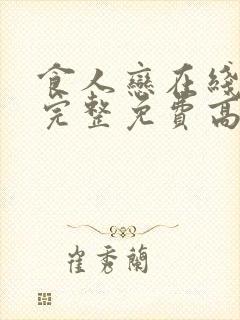 食人戀在綫
完整免費高
崔秀蘭